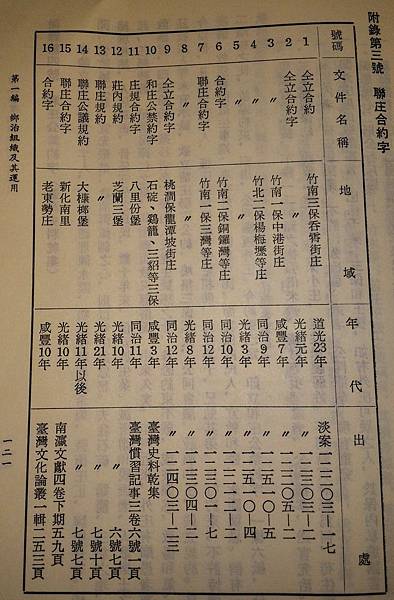 附錄第三號　聯庄合約字
號碼　文件名稱　地域　年代　出處
1　仝立合約　竹南三保吞霄街庄　道光23年　淡案一二二〇三—一七
2　仝立合約字　〃　光緒元年　〃
3　〃　竹南一保中港街庄　咸豐7年　〃一二二〇五—二
4　〃　〃　同治9年　〃一二五一〇—五
5　〃　竹北二保楊梅壢等庄　光緒3年　〃一二五一〇—四
6　合約字　竹南二保銅鑼灣等庄　同治10年　〃一二二一二—二
7　聯庄合約字　竹南一保三灣等庄　同治12年　〃一二三〇一—七
8　〃　〃　光緒8年　〃
9　仝立合約字　桃澗保龍潭坡街庄　同治12年　〃一二四〇三—二三
10　和庄公禁約字　石碇、鷄龍、三貂等三保　咸豐3年　臺灣史料乾集
11　庄規合約字　八里坌堡　同治11年　臺灣慣習記事三卷六號一頁
12　莊內規約　芝蘭三堡　光緒10年　〃　六號七頁
13　聯庄規約　〃　光緒21年　〃　七號十頁
14　聯庄公議規約　大槺榔堡　光緒11年以後　〃　七號七頁
15　聯庄合約字　新化南里　光緒10年　南瀛文獻四卷下期五九頁
16　合約字　老東勢庄　咸豐10年　臺灣文化論叢一輯二五三頁
第一編　鄉治組織及其運用
一二一